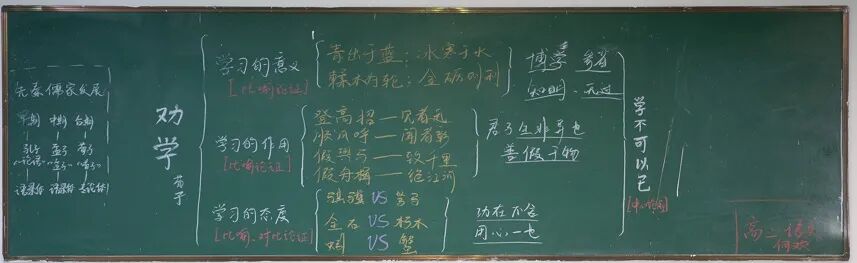 先秦儒家发展
早期 中期 后期
孔子 孟子 荀子
《论语》 《孟子》 《荀子》
语录体
劝学
荀子
学习的意义
[比喻论证]
青出于蓝；冰寒于水
輮木为轮；金砺则利
博学 参省
知明 无过
学习的作用
[比喻论证]
登高招——见者远
顺风呼——闻者彰
假舆马——致千里
假舟楫——绝江河
君子生非异也
善假于物
学习的态度
[比喻、对比论证]
骐骥 VS 驽马
金石 VS 朽木
蚓 VS 蟹
功在不舍
用心一也
学不可以已
[中心论点]
高二语文